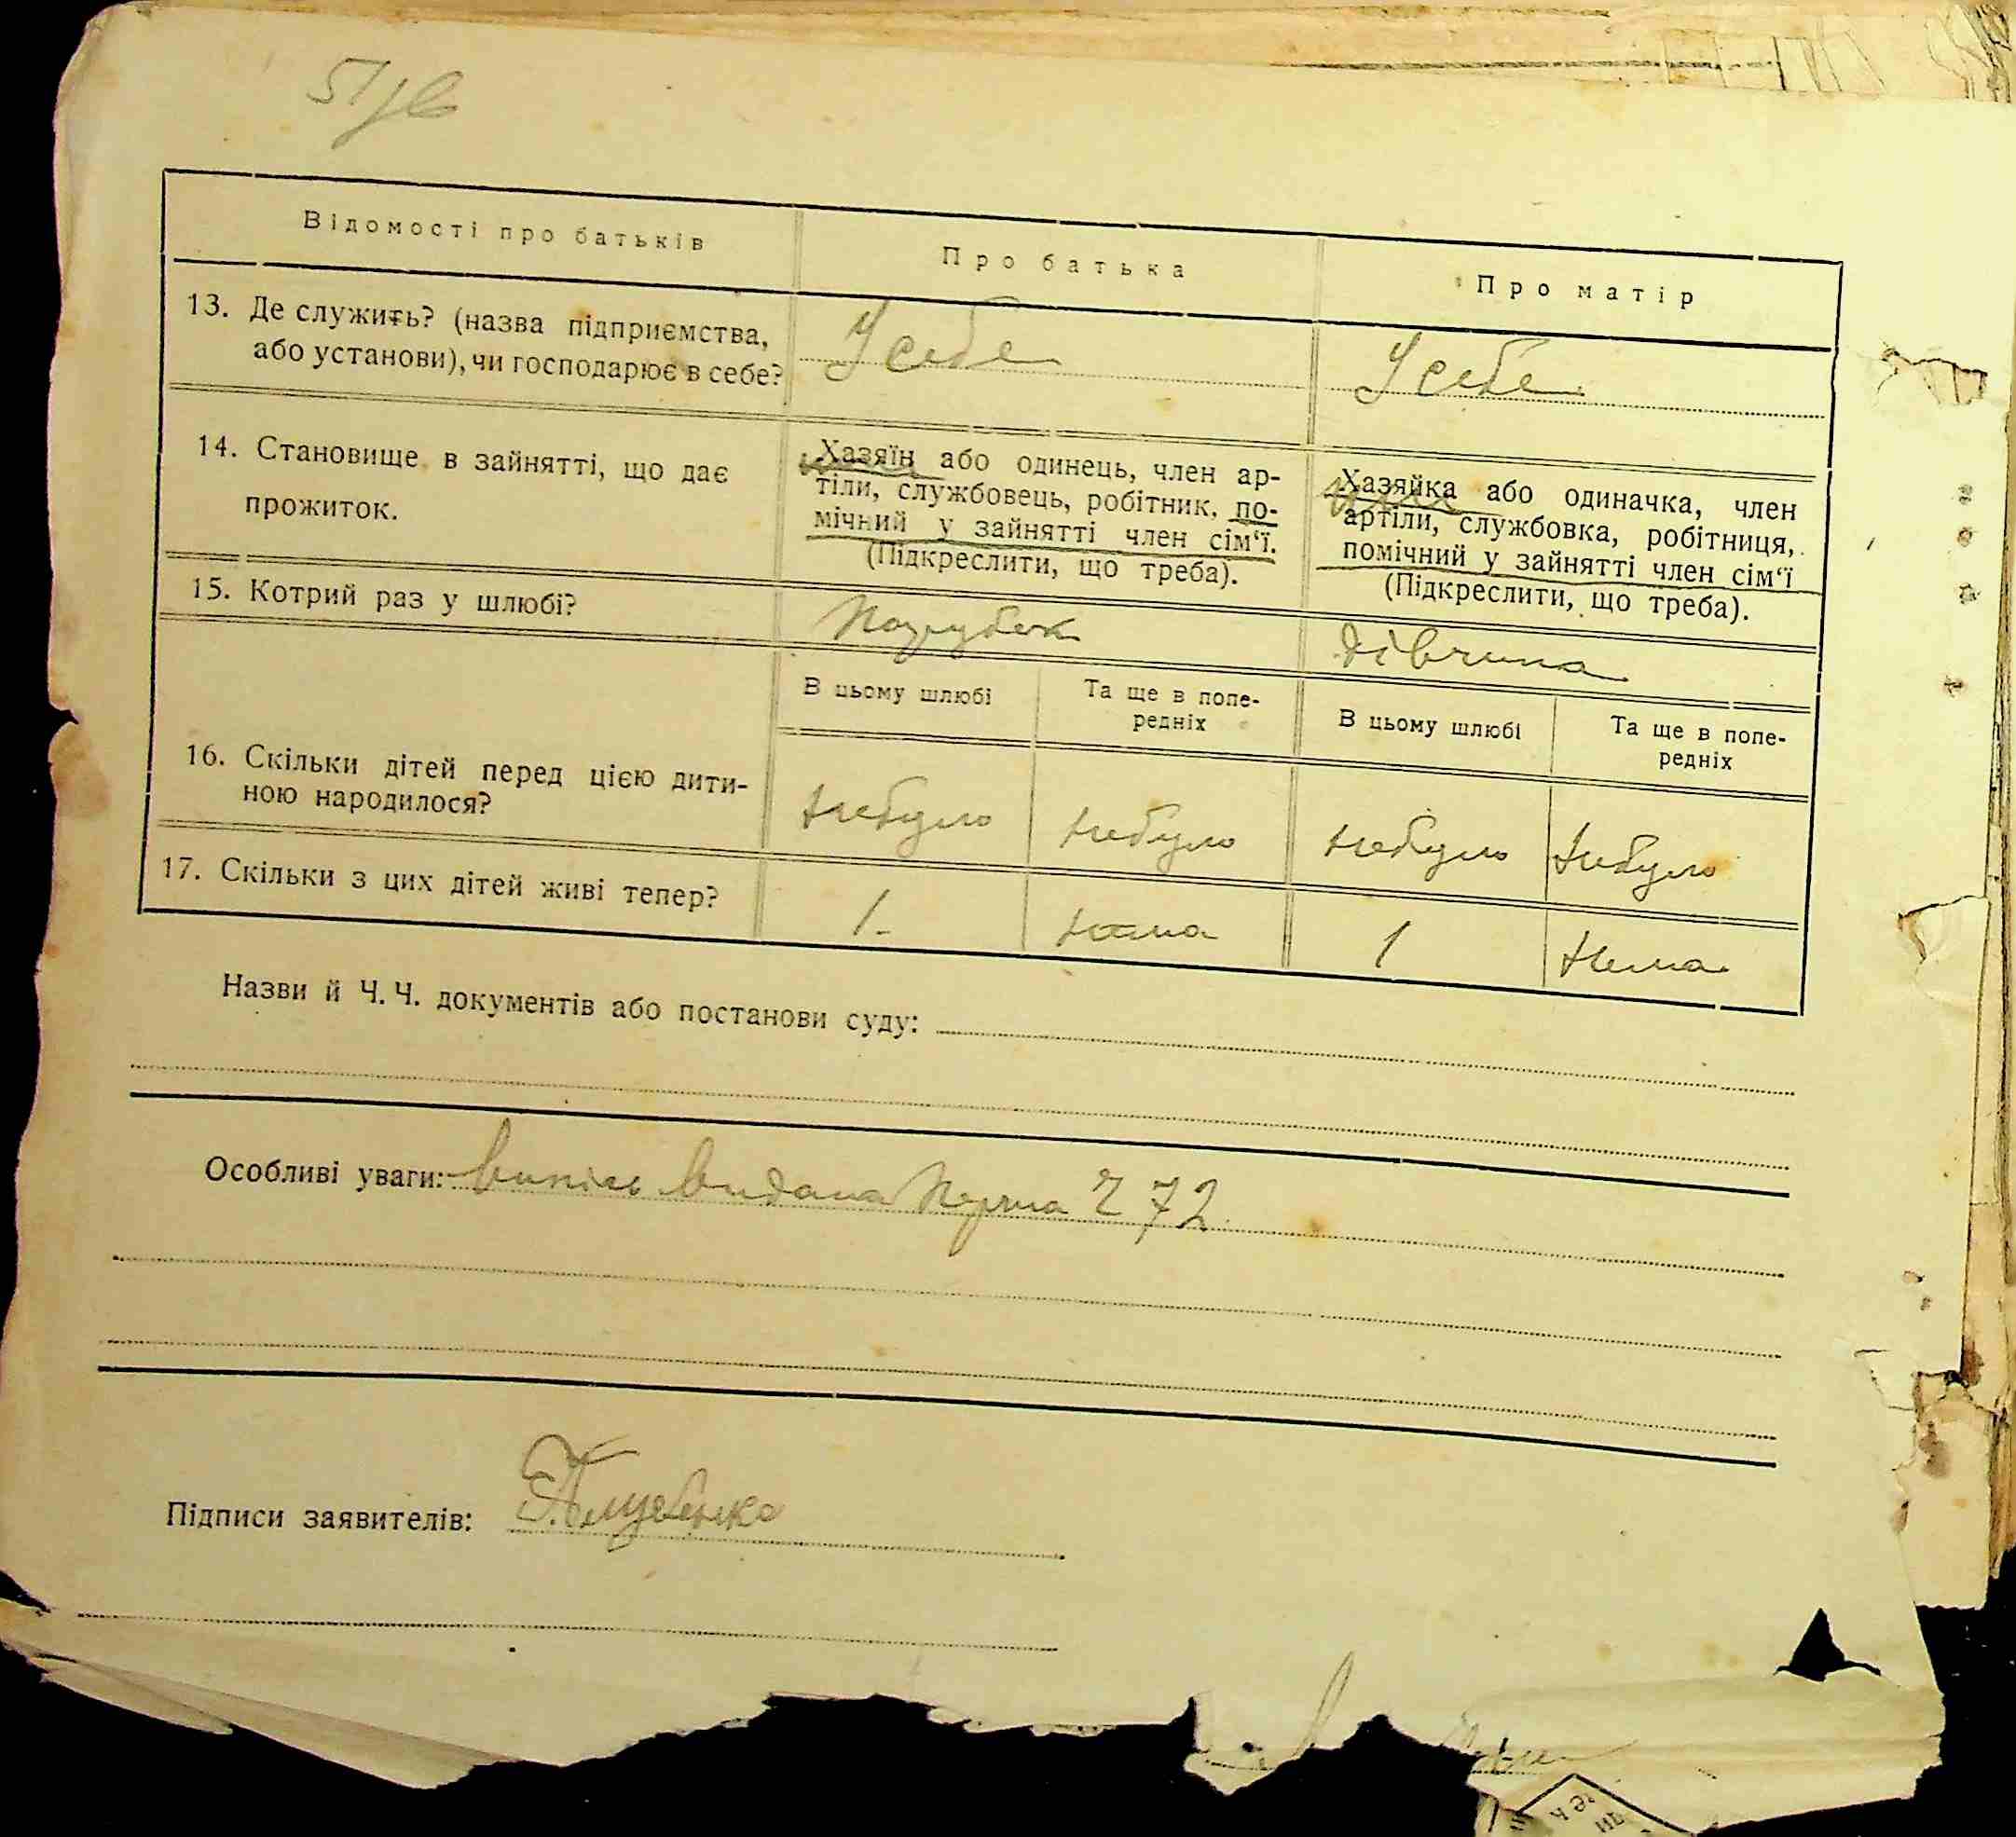 Відомості про батьків
Про батька
Про матір
13. Де служить? (назва підприємства,
або установи), чи господарює в себе?
У себе
У себе
14. Становище в зайнятті, що дає
прожиток.
Хазяїн або одинець, член ар-
тіли, службовець, робітник, по-
мічний у зайнятті член сім‘ї.
(Підкреслити, що треба).
Хазяйка або одиначка, член
артіли, службовка, робітниця,
помічний у зайнятті член сім‘ї
(Підкреслити, що треба).
15. Котрий раз у шлюбі?
Парубок
дівчина
В цьому шлюбі
Та ще в попе-
редніх
В цьому шлюбі
Та ще в попе-
редніх
16. Скільки дітей перед цією дити-
ною народилося?
небуло
небуло
небуло
небуло
17. Скільки з цих дітей живі тепер?
1.
нема
1
нема
Назви й Ч. Ч. документів або постанови суду:
Особливі уваги: Випись видана Перша Ч 72
Підписи заявителів: